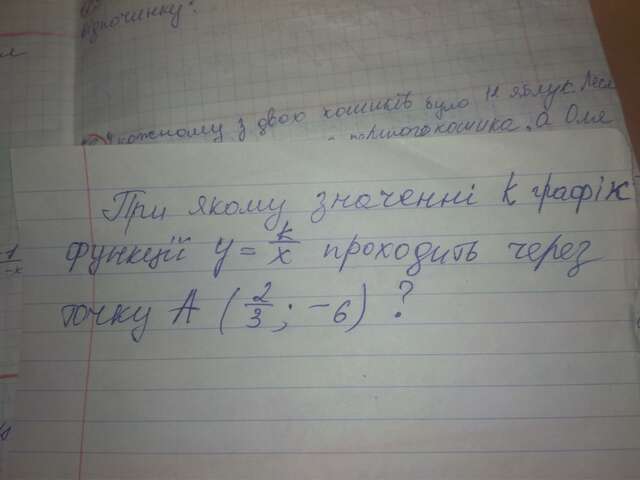 відпочинку.
кожному з двох кошиків було 12 яблук. Леся
кошика, а Оля
При якому значенні k графік
функції y = k/x проходить через
точку A (2/3; -6) ?